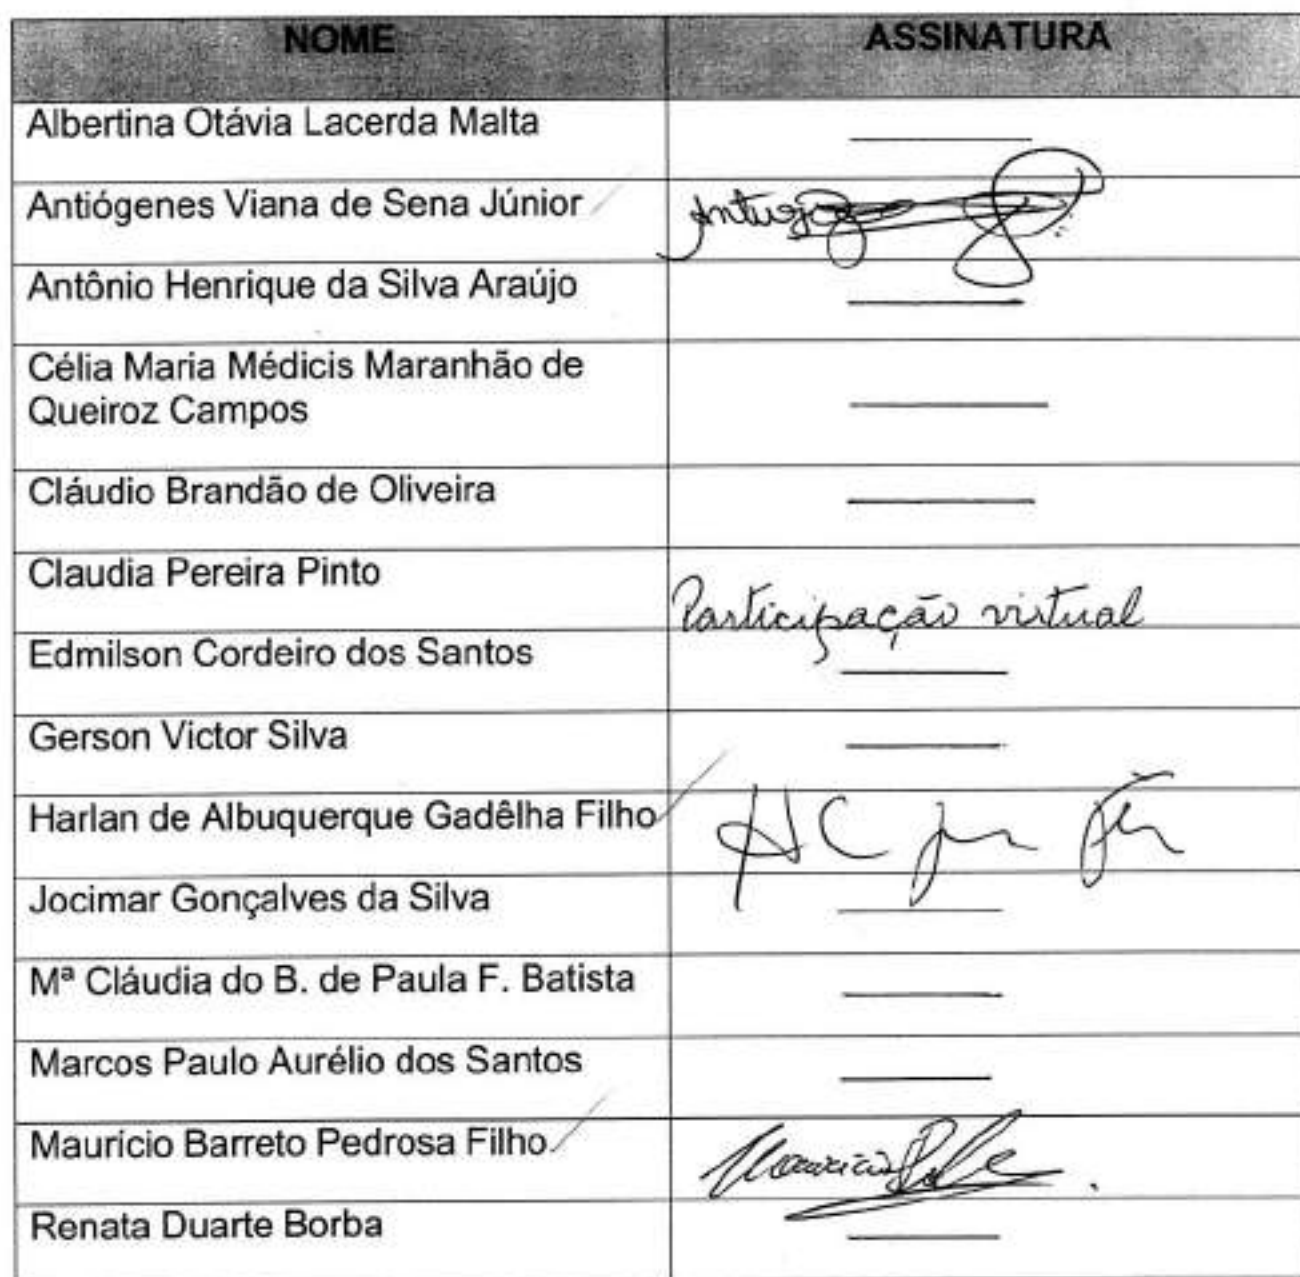 NOME ASSINATURA
Albertina Otávia Lacerda Malta
Antiógenes Viana de Sena Júnior
Antônio Henrique da Silva Araújo
Célia Maria Médicis Maranhão de
Queiroz Campos
Cláudio Brandão de Oliveira
Claudia Pereira Pinto Participação virtual
Edmilson Cordeiro dos Santos
Gerson Victor Silva
Harlan de Albuquerque Gadêlha Filho
Jocimar Gonçalves da Silva
Mª Cláudia do B. de Paula F. Batista
Marcos Paulo Aurélio dos Santos
Maurício Barreto Pedrosa Filho
Renata Duarte Borba